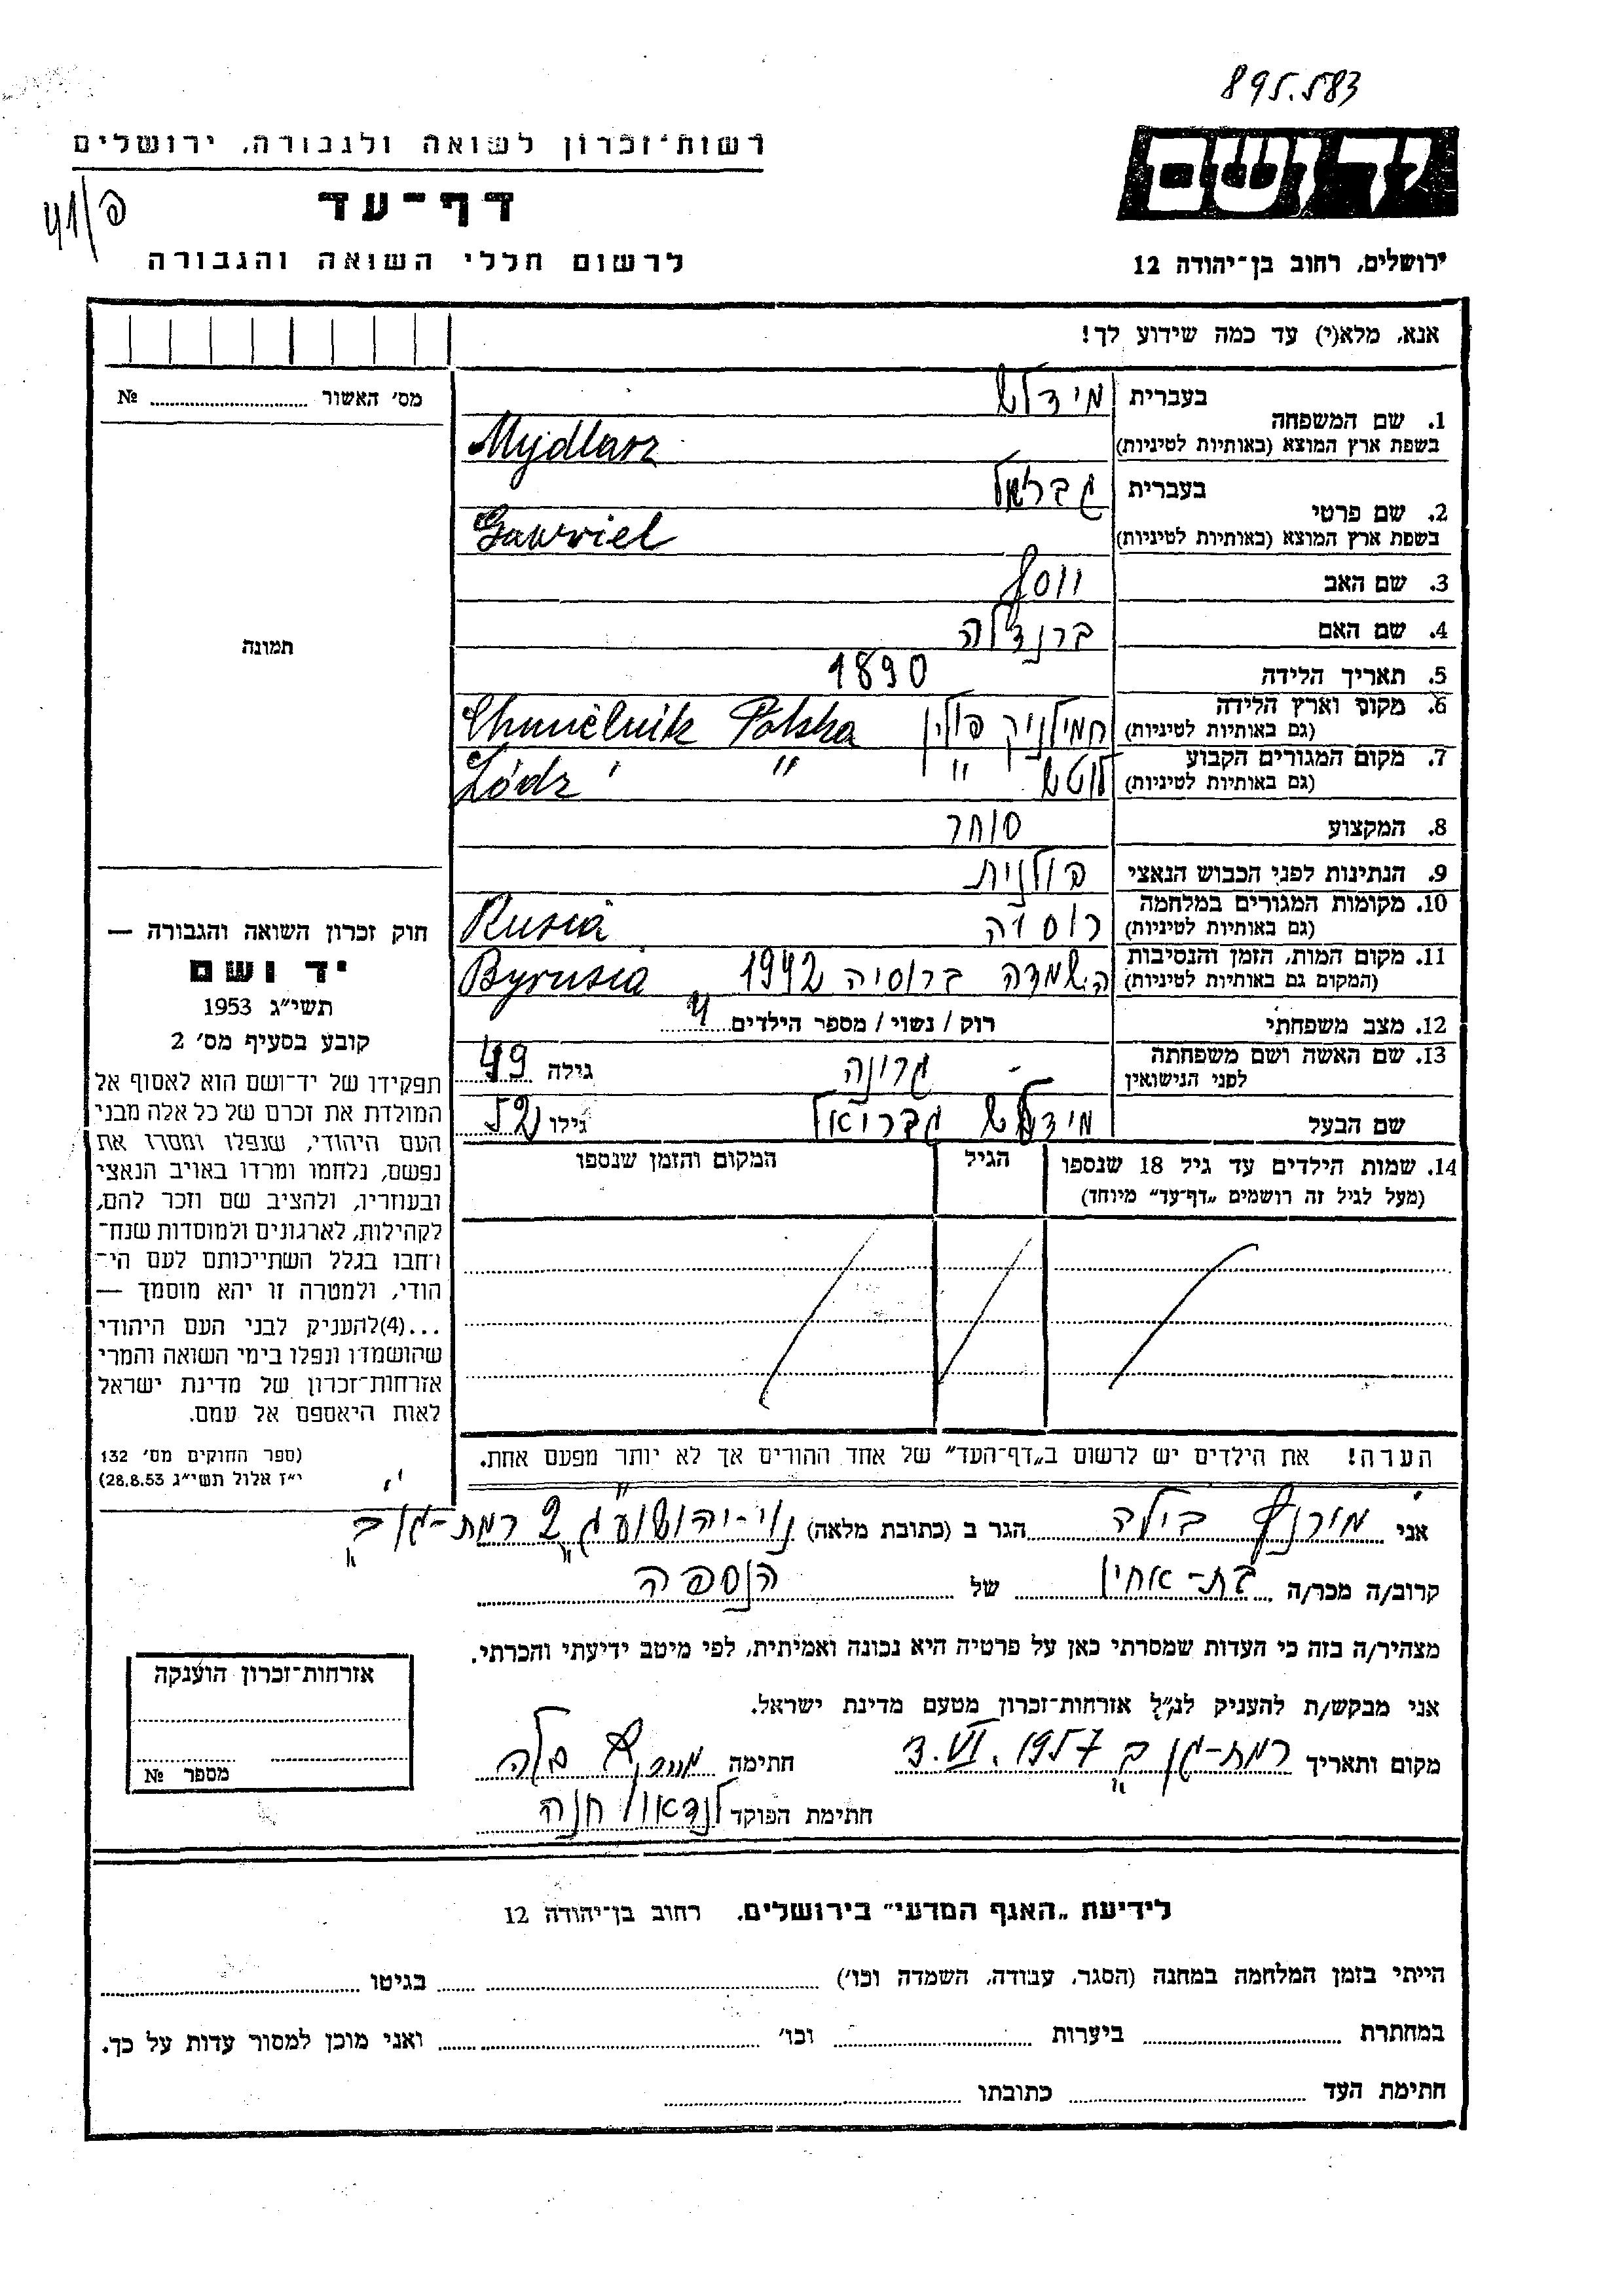 895.583
רשות־זכרון לשואה ולגבורה, ירושלים
יד ושם
דף־עד
פ/41
לרשום חללי השואה והגבורה
ירושלים, רחוב בן־יהודה 12
אנא, מלא(י) עד כמה שידוע לך!
מס׳ האשור № 
1. שם המשפחה בעברית מידלש
בשפת ארץ המוצא (באותיות לטיניות) Mydlarz
2. שם פרטי בעברית גבריאל
בשפת ארץ המוצא (באותיות לטיניות) Gawriel
3. שם האב יוסף
4. שם האם ברנדלה
5. תאריך הלידה 1890
6. מקום וארץ הלידה
(גם באותיות לטיניות) חמילניק פולין Chmielnik Polska
7. מקום המגורים הקבוע
(גם באותיות לטיניות) לודש " Łódz "
8. המקצוע סוחר
9. הנתינות לפני הכבוש הנאצי פולנית
10. מקומות המגורים במלחמה
(גם באותיות לטיניות) רוסיה Rusia
11. מקום המות, הזמן והנסיבות
(המקום גם באותיות לטיניות) השמדה ברוסיה 1942 Byrusia
12. מצב משפחתי רוק / נשוי / מספר הילדים 4
13. שם האשה ושם משפחתה
לפני הנישואין גרונה גילה 49
שם הבעל מידלש גבריאל גילו 52
14. שמות הילדים עד גיל 18 שנספו
(מעל לגיל זה רושמים „דף־עד” מיוחד)
הגיל
המקום והזמן שנספו
הערה! את הילדים יש לרשום ב„דף־העד” של אחד ההורים אך לא יותר מפעם אחת.
תמונה
חוק זכרון השואה והגבורה —
יד ושם
תשי״ג 1953
קובע בסעיף מס׳ 2
תפקידו של יד־ושם הוא לאסוף אל
המולדת את זכרם של כל אלה מבני
העם היהודי, שנפלו ומסרו את
נפשם, נלחמו ומרדו באויב הנאצי
ובעוזריו, ולהציב שם וזכר להם,
לקהילות, לארגונים ולמוסדות שנח־
רבו בגלל השתייכותם לעם הי־
הודי, ולמטרה זו יהא מוסמך —
...(4)להעניק לבני העם היהודי
שהושמדו ונפלו בימי השואה והמרי
אזרחות־זכרון של מדינת ישראל
לאות היאספם אל עמם.
(ספר החוקים מס׳ 132
י״ז אלול תשי״ג 28.8.53)
אני בילה הגר ב (כתובת מלאה) נוי-יהושע 2 רמת-גן ב
קרוב/ה מכר/ה בת-אחין של הנספה
מצהיר/ה בזה כי העדות שמסרתי כאן על פרטיה היא נכונה ואמיתית, לפי מיטב ידיעתי והכרתי.
אני מבקש/ת להעניק לנ״ל אזרחות־זכרון מטעם מדינת ישראל.
מקום ותאריך רמת-גן ב 3.VI.1957 חתימה
חתימת הפוקד לנדאו חנה
אזרחות־זכרון הוענקה
מספר №
לידיעת „האגף המדעי” בירושלים, רחוב בן־יהודה 12
הייתי בזמן המלחמה במחנה (הסגר, עבודה, השמדה וכו׳) בגיטו
במחתרת ביערות וכו׳ ואני מוכן למסור עדות על כך.
חתימת העד כתובתו